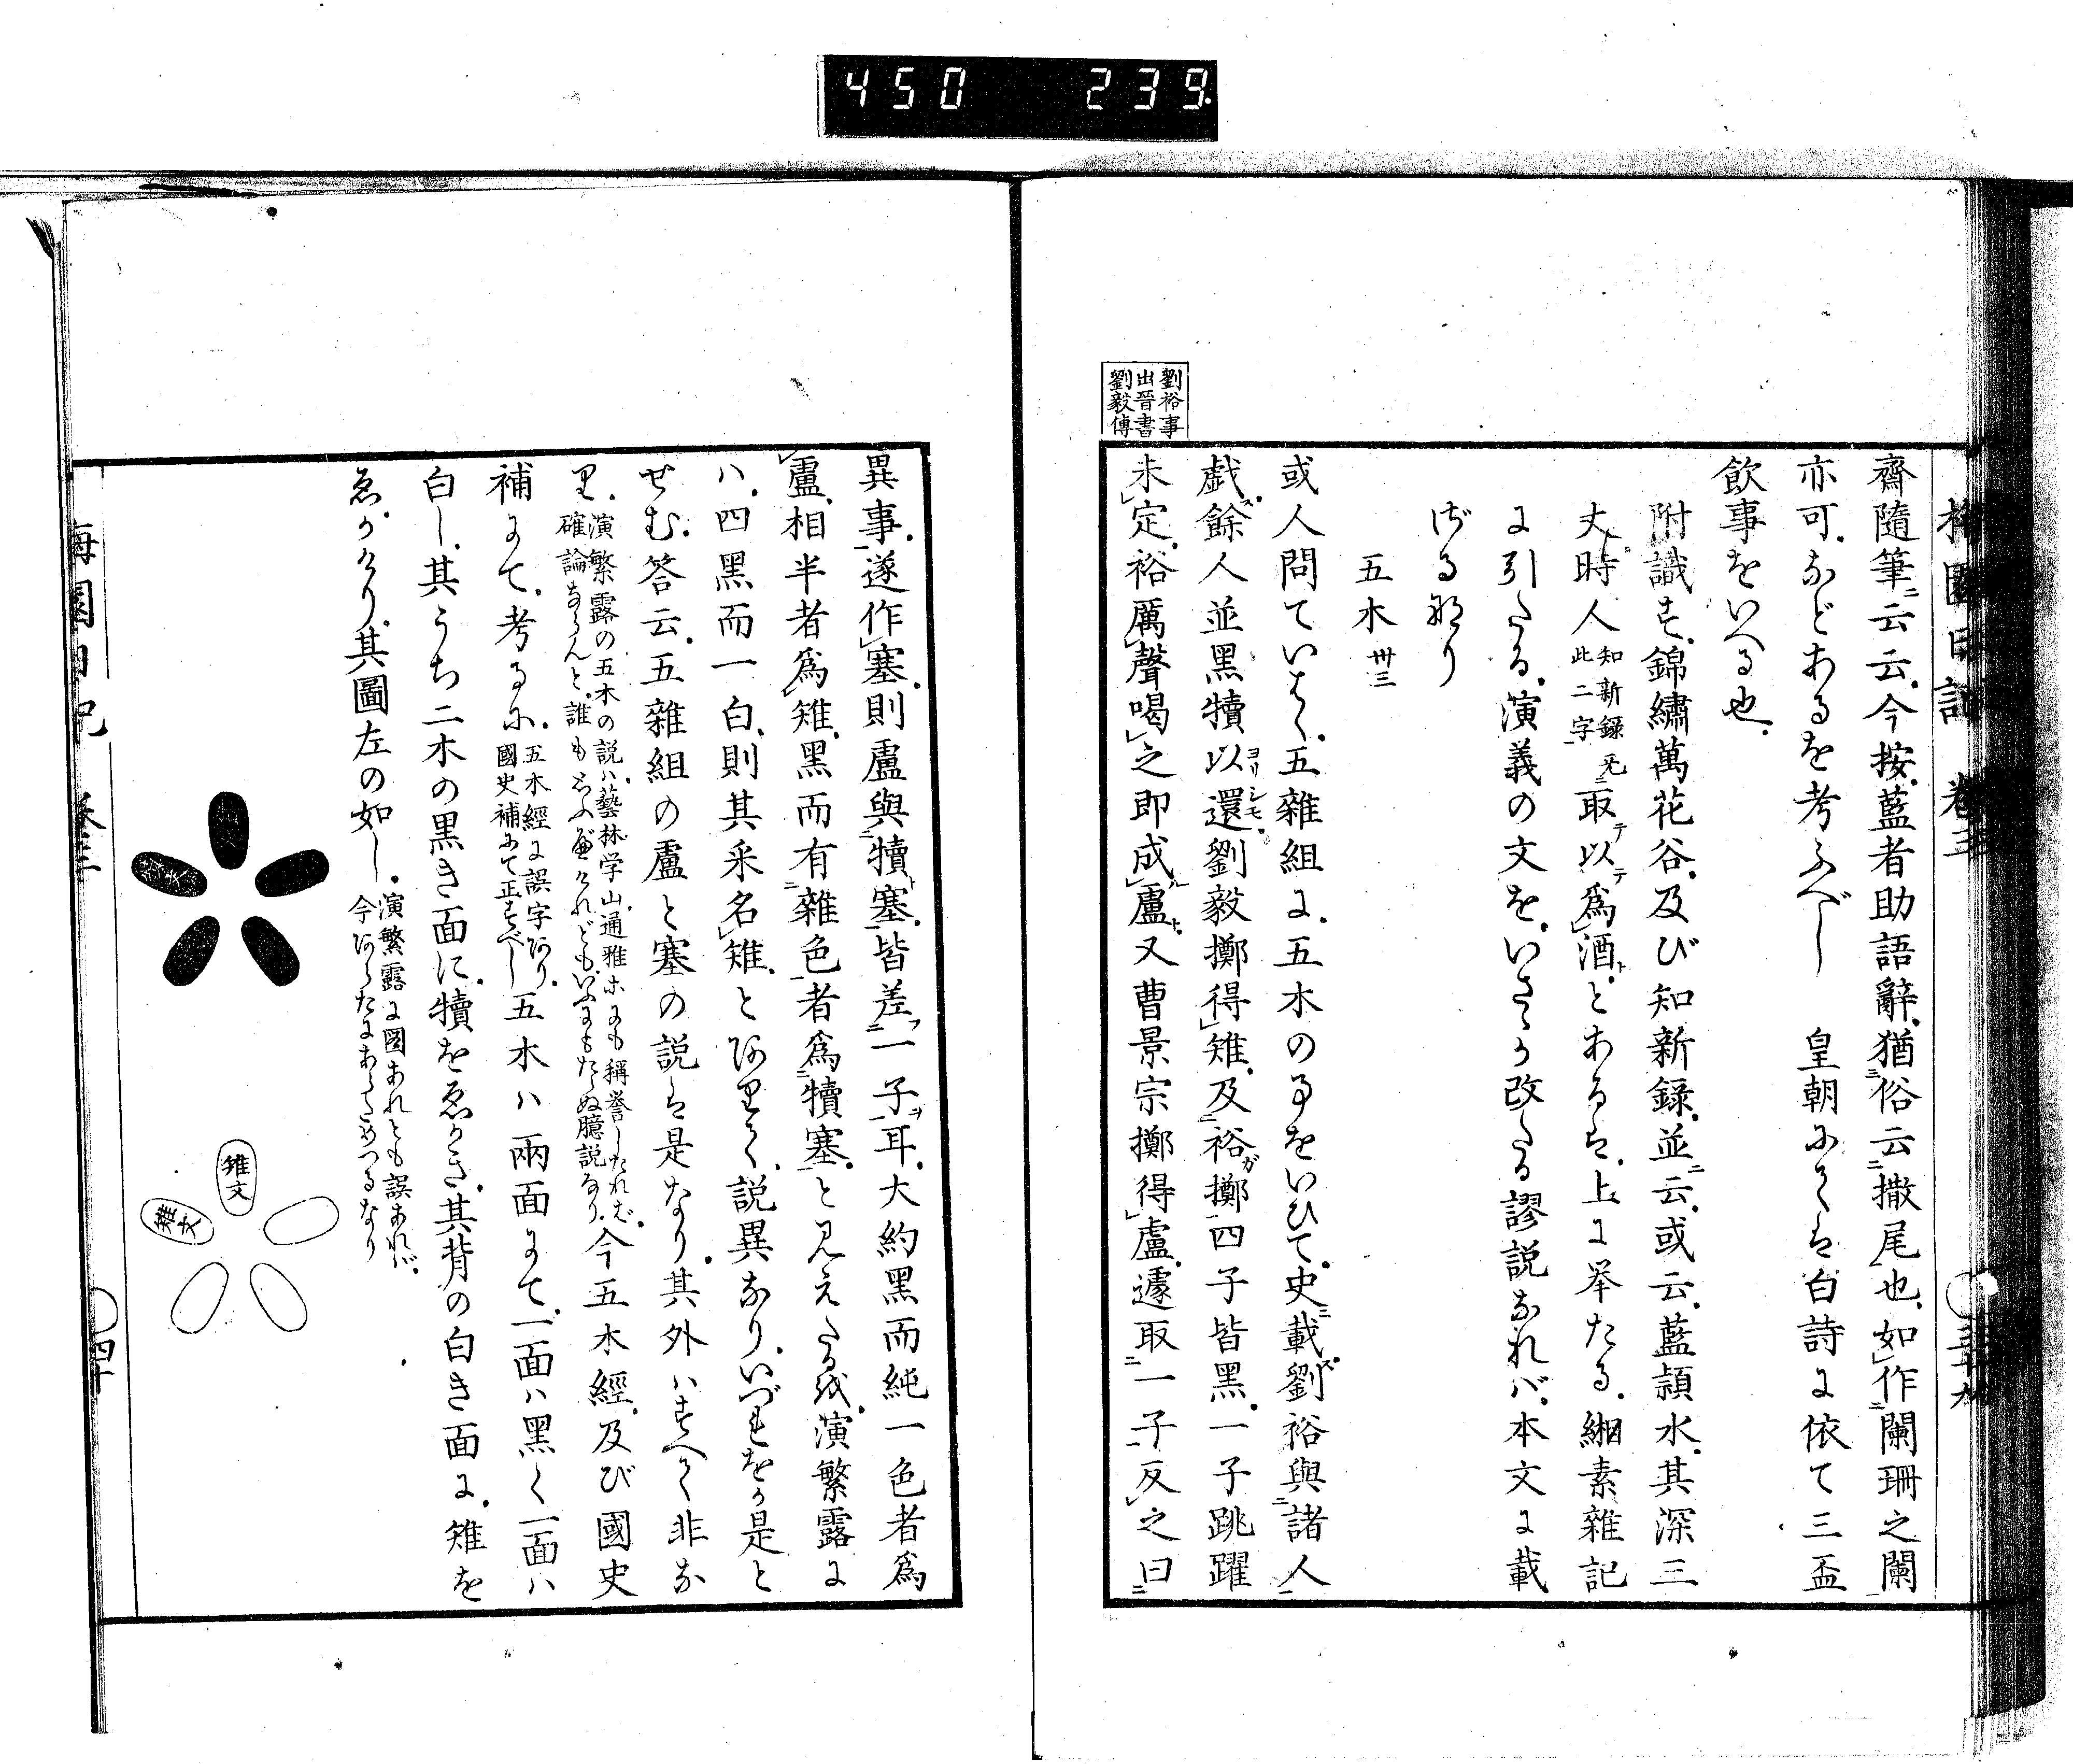 450 239
梅園日記 卷三
齋隨筆云云。今按。藍者助語辭。猶俗云撒尾也。如作闌珊之闌
亦可。などあるを考ふべし 皇朝にては白詩に依て三盃
飲事をいへる也。
附識す。錦繡萬花谷。及び知新録。並云。或云。藍頴水。其深三
丈。時人知新録无此二字取テ以テ爲酒ト。とあるは。上に挙たる。緗素雜記
に引たる。演義の文を。いさゝか改たる謬説なれバ。本文に載
ざる也り
五木 卅三
或人問ていはく。五雜組に。五木の事をいひて。史載ス劉裕與諸人
戯ス。餘人並黑犢以還ヨリシモ。劉毅擲得雉。及裕ガ擲四子皆黑。一子跳躍
未定。裕厲聲喝之即成ル盧ト。又曹景宗擲得盧。遽取一子反之曰
劉裕事
出晉書
劉毅傳
異事。遂作塞。則盧與犢塞。皆差フ一子ヲ耳。大約黑而純一色者爲
盧。相半者爲雉。黑而有雜色者爲犢塞。と見えたるハ。演繁露に
ハ。四黑而一白。則其釆名雉。とありて。説異なり。いづれをか是と
せむ。答云。五雜組の盧と塞の説は是なり。其外ハすべて非な
り。演繁露の五木の説ハ。藝林学山。通雅ホにも稱誉したれば。確論ならんと。誰もおもふ歟なれども。いふにもたらぬ臆説なり。今五木經。及び國史
補にて。考るに。五木經に誤字あり。國史補にて正すべし五木ハ兩面にて。一面ハ黑く一面ハ
白し。其うち二木の黒き面に。犢をゑがき。其背の白き面に。雉を
ゑがけり。其圖左の如し。演繁露に圖あれとも誤あれバ。今あらたにあらためつるなり
雉文
雉文
梅園日記 卷三
四十